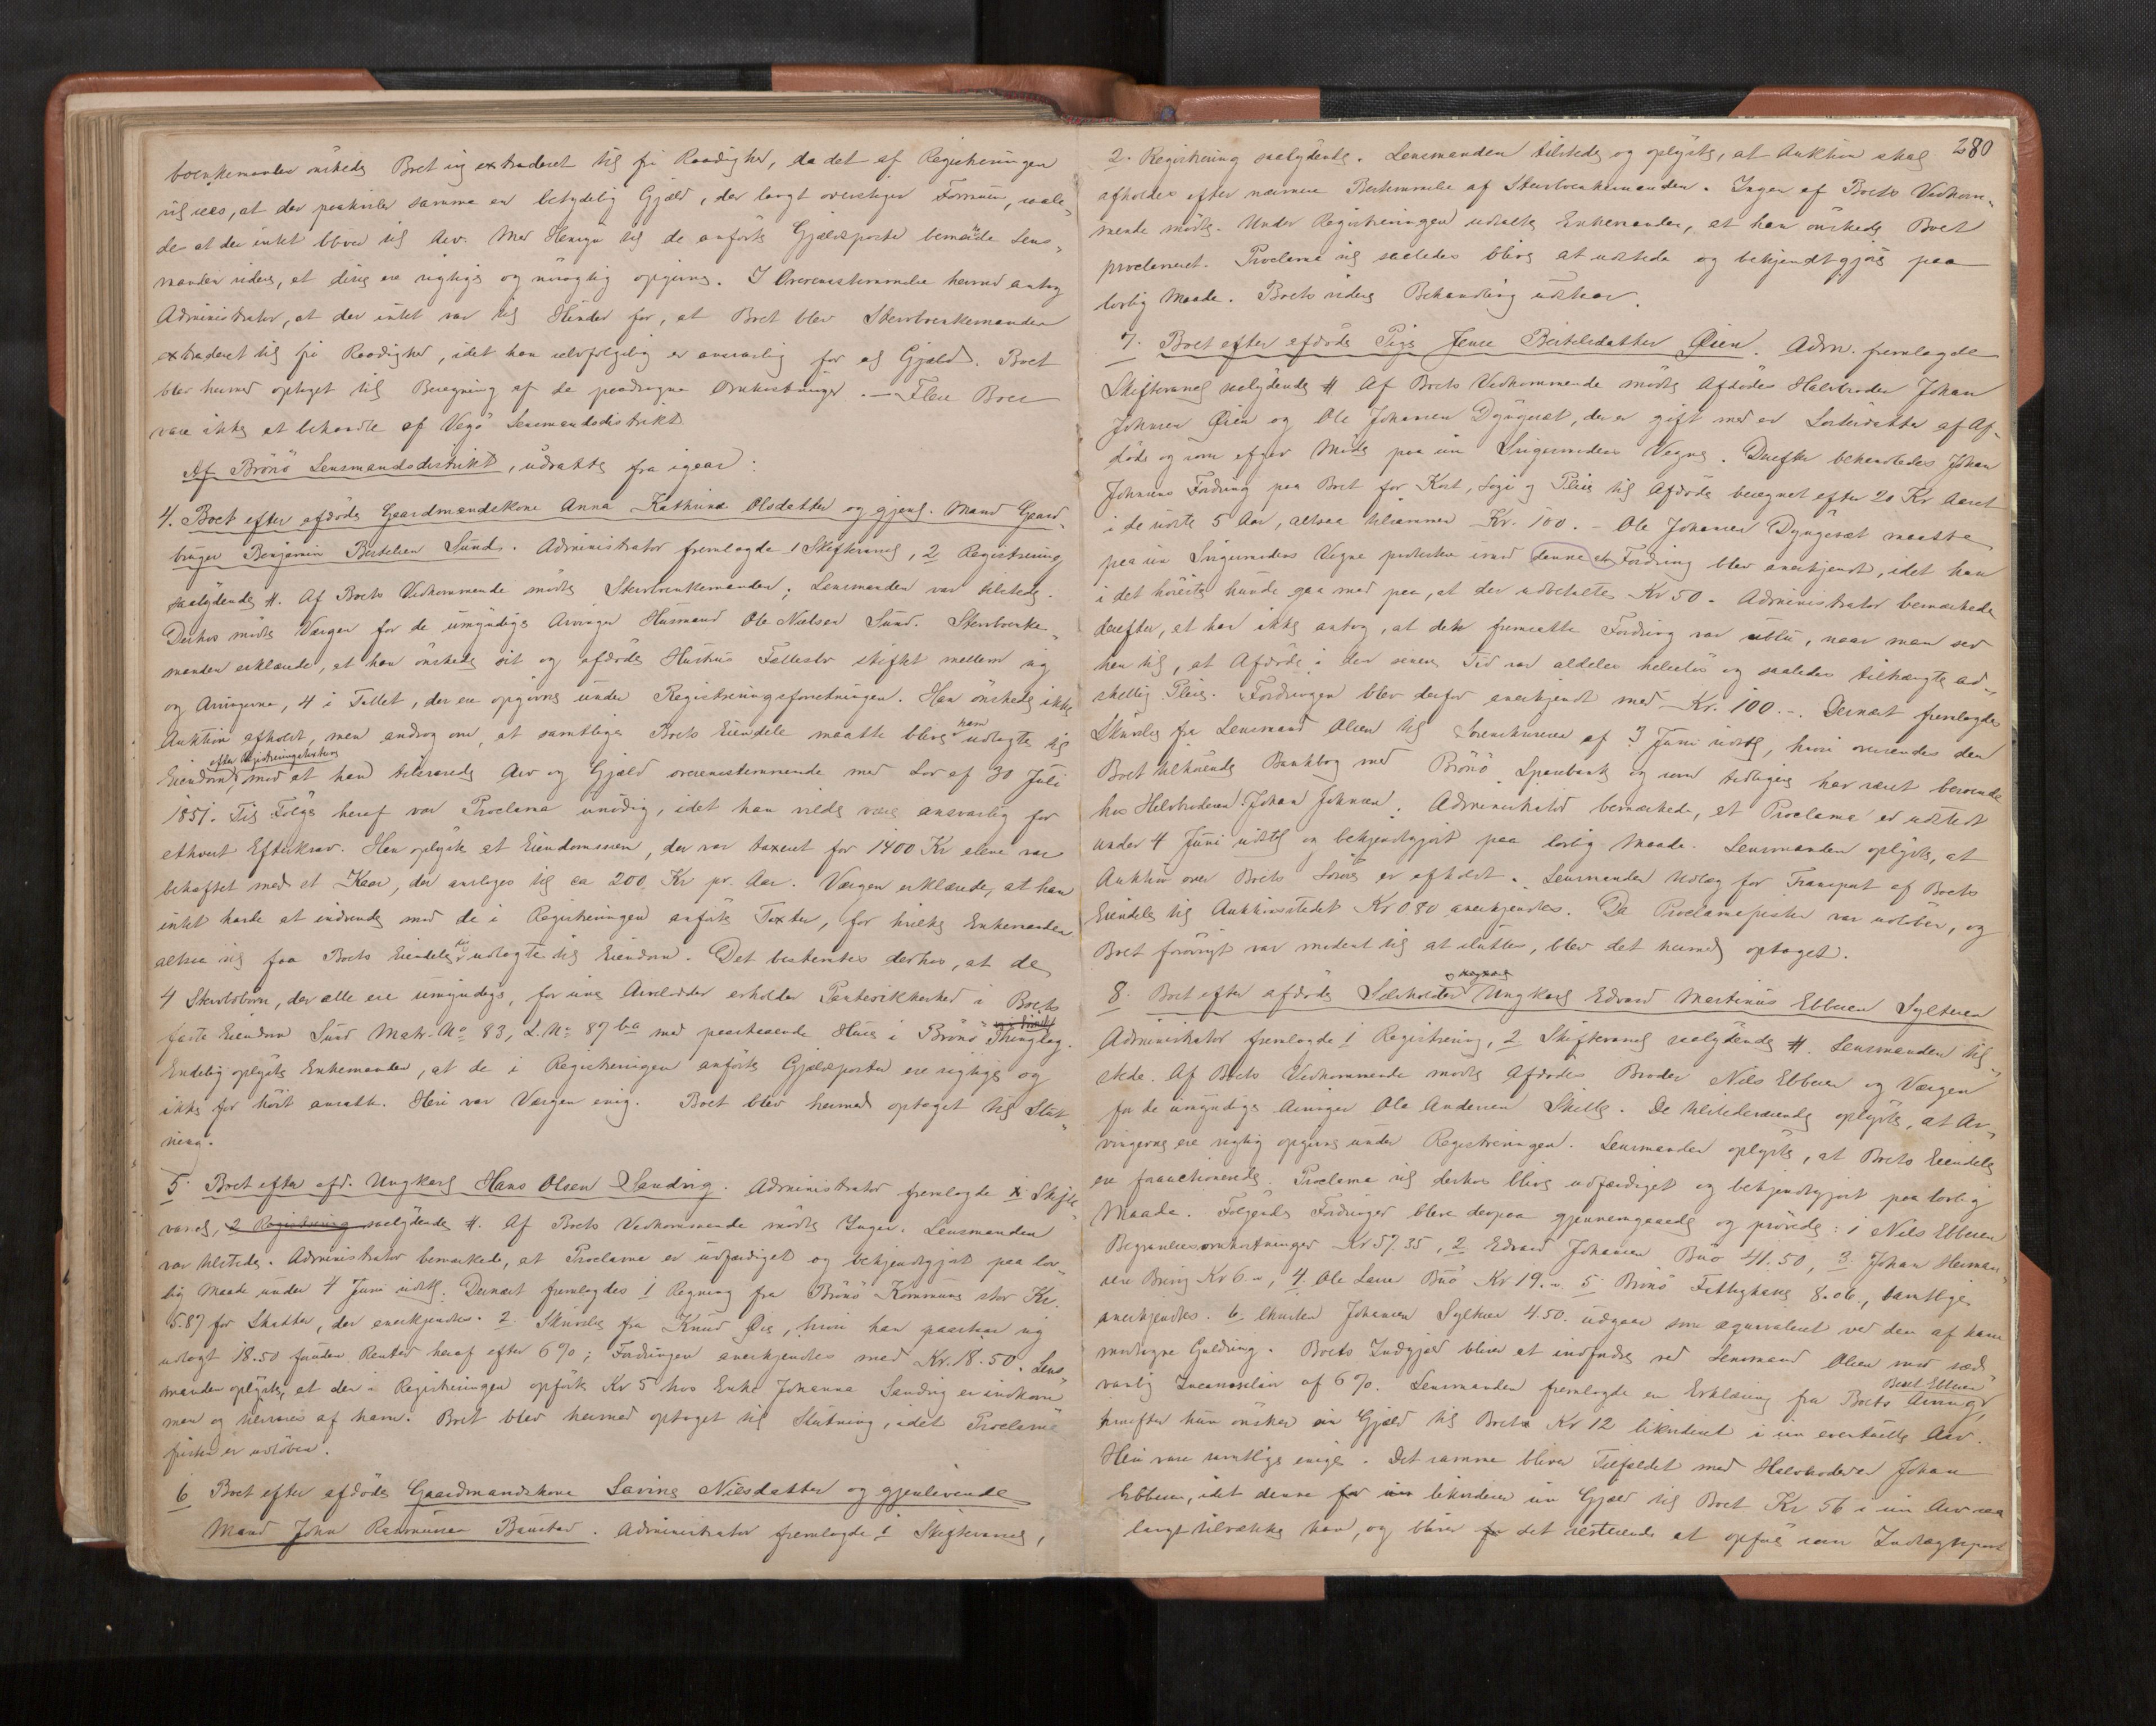 boenkemanden önskede Boet sig extraderet til fri Raadighed, da det af Registreringen
vil sees, at der paahviler samme en betydelig Gjæld, der langt overstiger Formuen, saale„
de at der intet bliver til Arv. Med Hensyn til de anförte Gjældsposter bemærkede Lens„
manden videre, at disse ere rigtige og nöiagtig opgivne. I Overensstemmelse hermed antog
Administrator, at der intet var til Hinder for, at Boet blev Stervboenkemanden
extraderet til fri Raadighed, idet han selvfölgelig er ansvarlig for al Gjæld. Boet
blev hermed optaget til Beregning af de paadragne Omkostninger. — Flere Boer
vare ikke at behandle af Vegö Lensmandsdistrikt.
Af Brönö Lensmandsdistrikt, udsatte fra igaar:
4. Boet efter afdöde Gaardmandskone Anna Kathrina Olsdatter og gjenl. Mand Gaard„
bruger Benjamin Bertelsen Sund. Administrator fremlagde 1 Skiftevarsel, 2 Registrering
saalydende #. Af Boets Vedkommende mödte Stervboenkemanden; Lensmanden var tilstede.
Derhos mödte Værgen for de umyndige Arvinger Husmand Ole Nielsen Sund. Stervboenke„
manden erklærede, at han önskede sit og afdöde Hustrus Fællesbo skiftet mellem sig
og Arvingerne, 4 i Tallet, der ere opgivne under Registreringsforretningen. Han önskede ikke
Auktion afholdt, men androg om, at samtlige Boets Eiendele maatte blive ham udlagte til
Eiendom efter Registreringstaxten, mod at han tilsvarede Arv og Gjæld overensstemmende med Lov af 30 Juli
1851. Til Fölge heraf var Proclama unödig, idet han vilde være ansvarlig for
ethvert Efterkrav. Han oplyste at Eiendommen, der var taxeret for 1400 Kr alene var
behæftet med et Kaar, der ansloges til ca 200 Kr pr. Aar. Værgen erklærede, at han
intet havde at indvende mod de i Registreringen anförte Taxter, for hvilke Enkemanden
altsaa vil faa Boets Eiendele udlagte til Eiendom. Det bestemtes derhos, at de
4 Stervbobörn, der alle ere umyndige, for sine Arvelodder erholder Pantesikkerhed i Boets
faste Eiendom Sund Matr. No 83, L. No 87 ba med paastaaende Huse i Brönö Thinglag.
Endelig oplyste Enkemanden, at de i Registreringen anförte Gjældsposter ere rigtige og
ikke for höit ansatte. Heri var Værgen enig. Boet blev hermed optaget til Slut„
ning.
5. Boet efter afd. Ungkarl Hans Olsen Sandvig. Administrator fremlagde 1 Skifte
varsel, 2 Registrering saalydende #. Af Boets Vedkommende mödte Ingen. Lensmanden
var tilstede. Administrator bemærkede, at Proclama er udfærdiget og bekjendtgjort paa lov„
lig Maade under 4 Juni sidstl. Dernæst fremlagdes 1 Regning fra Brönö Kommune stor Kr.
5.87 for Skatter, der anerkjendtes. 2 Skrivelse fra Knud Öie, hvori han paastaar sig
udlagt 18.50 foruden Renter heraf efter 6 %; Fordringen anerkjendtes med Kr. 18.50. Lens
manden oplyste, at den i Registreringen opförte Kr 5 hos Enke Johanna Sandvig er indkom
men og tilsvares af ham. Boet blev hermed optaget til Slutning, idet Proclama
fristen er udlöben.
6 Boet efter afdöde Gaardmandskone Savine Nilsdatter og gjenlevende
Mand John Rasmussen Baustad. Administrator fremlagde 1 Skiftevarsel,
280
2. Registrering saalydende. Lensmanden tilstede og oplyste, at Auktion skal
afholdes efter nærmere Bestemmelse af Stervboenkemanden. Ingen af Boets Vedkom„
mende mödte. Under Registreringen udtalte Enkemanden, at han önskede Boet
proclameret. Proclama vil saaledes blive at udstede og bekjendtgjöre paa
lovlig Maade. Boets videre Behandling udstaar.
7. Boet efter afdöde Pige Jense Bertelsdatter Öien. Adm. fremlagde
Skiftevarsel saalydende # Af Boets Vedkommende mödte Afdödes Halvbroder Johan
Johnsen Öien og Ole Johansen Dyngesæt, der er gift med en Sösterdatter af Af„
döde og som afgav Möde paa sin Svigermoders Vegne. Derefter behandledes Johan
Johnsens Fordring paa Boet for Kost, Logi og Pleie til Afdöde beregnet efter 20 Kr. Aaret
i de sidste 5 Aar, altsaa tilsammen Kr. 100. – Ole Johansen Dyngesæt maatte
paa sin Svigermoders Vegne protestere imod denne at Fordring blev anerkjendt, idet han
i det höieste kunde gaa med paa, at der udbetaltes Kr 50. Administrator bemærkede
derefter, at han ikke antog, at den fremsatte Fordring var ubillig, naar man ser
hen til, at Afdöde i den senere Tid var aldeles helselös og saaledes tiltrængte ad„
skillig Pleie. Fordringen blev derfor anerkjendt med Kr. 100.–. Dernæst fremlagdes
Skrivelse fra Lensmand Olsen til Sorenskriveren af 3 Juni sidstl., hvori oversendes den
Boet tilhörende Bankbog med Brönö Sparebank og som tidligere har været beroende
hos Halvbroderen Johan Johnsen. Administrator bemærkede, at Proclama er udstedt
under 4 Juni sidstl og bekjendtgjort paa lovlig Maade. Lensmanden oplyste, at
Auktion over Boets Lösöre er afholdt. Lensmandens Udlæg for Transport af Boets
Eiendele til Auktionsstedet Kr 0.80 anerkjendtes. Da Proclamafristen var udlöben, og
Boet forövrigt var modent til at sluttes, blev det hermed optaget.
8. Boet efter afdöde Ungkarl Edvard Martinus Ebbesen Sylteren
Administrator fremlagde 1 Registrering, 2 Skiftevarsel saalydende #. Lensmanden til„
stede. Af Boets Vedkommende mödte Afdödes Broder Nils Ebbesen og Værgen
for de umyndige Arvinger Ole Andersen Skille. De tilstedeværende oplyste, at Ar„
vingerne ere rigtig opgivne under Registreringen. Lensmanden oplyste, at Boets Eiendele
ere frauctionerede. Proclama vil derhos blive udfærdiget og bekjendtgjort paa lovlig
Maade. Fölgende Fordringer bleve derpaa gjennemgaaede og prövede: 1 Nils Ebbesen
Begravelsesomkostninger Kr 57.35, 2. Edvard Johansen Buö 41.50, 3. Johan Herman„
sen Kr 6 „, 4. Ole Larsen Buö Kr 19. „ 5 Brönö Fattigkasse 8.06., samtlige
anerkjendtes. 6 Johansen Sylteren 4.50. udgaar som æquivaleret ved den af ham
modtagne Guldring. Boets Indgjæld bliver at indfordre ved Lensmand Olsen mod sæd
vanlig Incassosalair af 6 %. Lensmanden fremlagde en Erklæring fra Boets Arving Beret Ebbesen,
hvorefter hun önsker sin Gjæld til Boet Kr 12 likvideret i sin eventuelle Arv.
Heri vare samtlige enige. Det samme bliver Tilfældet med Halvbroderen Johan
Ebbesen, idet denne likviderer sin Gjæld til Boet Kr 56 i sin Arv saa
langt tilrække kan, og bliver det resterende at opföre som Indtægtspost